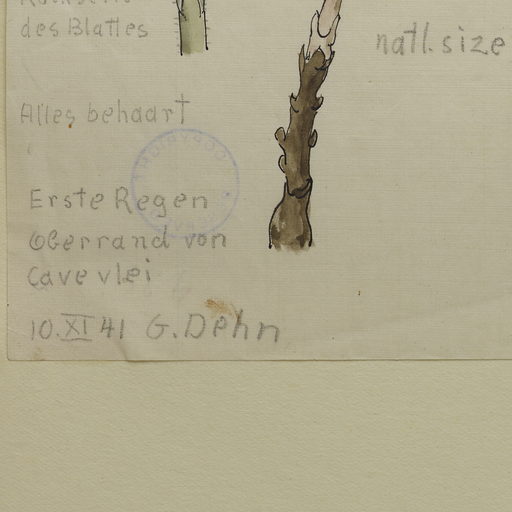 des Blattes
natl. size
Alles behaart
Erste Regen
Oberrand von
Cave vlei
10. XI 41 G. Dehn